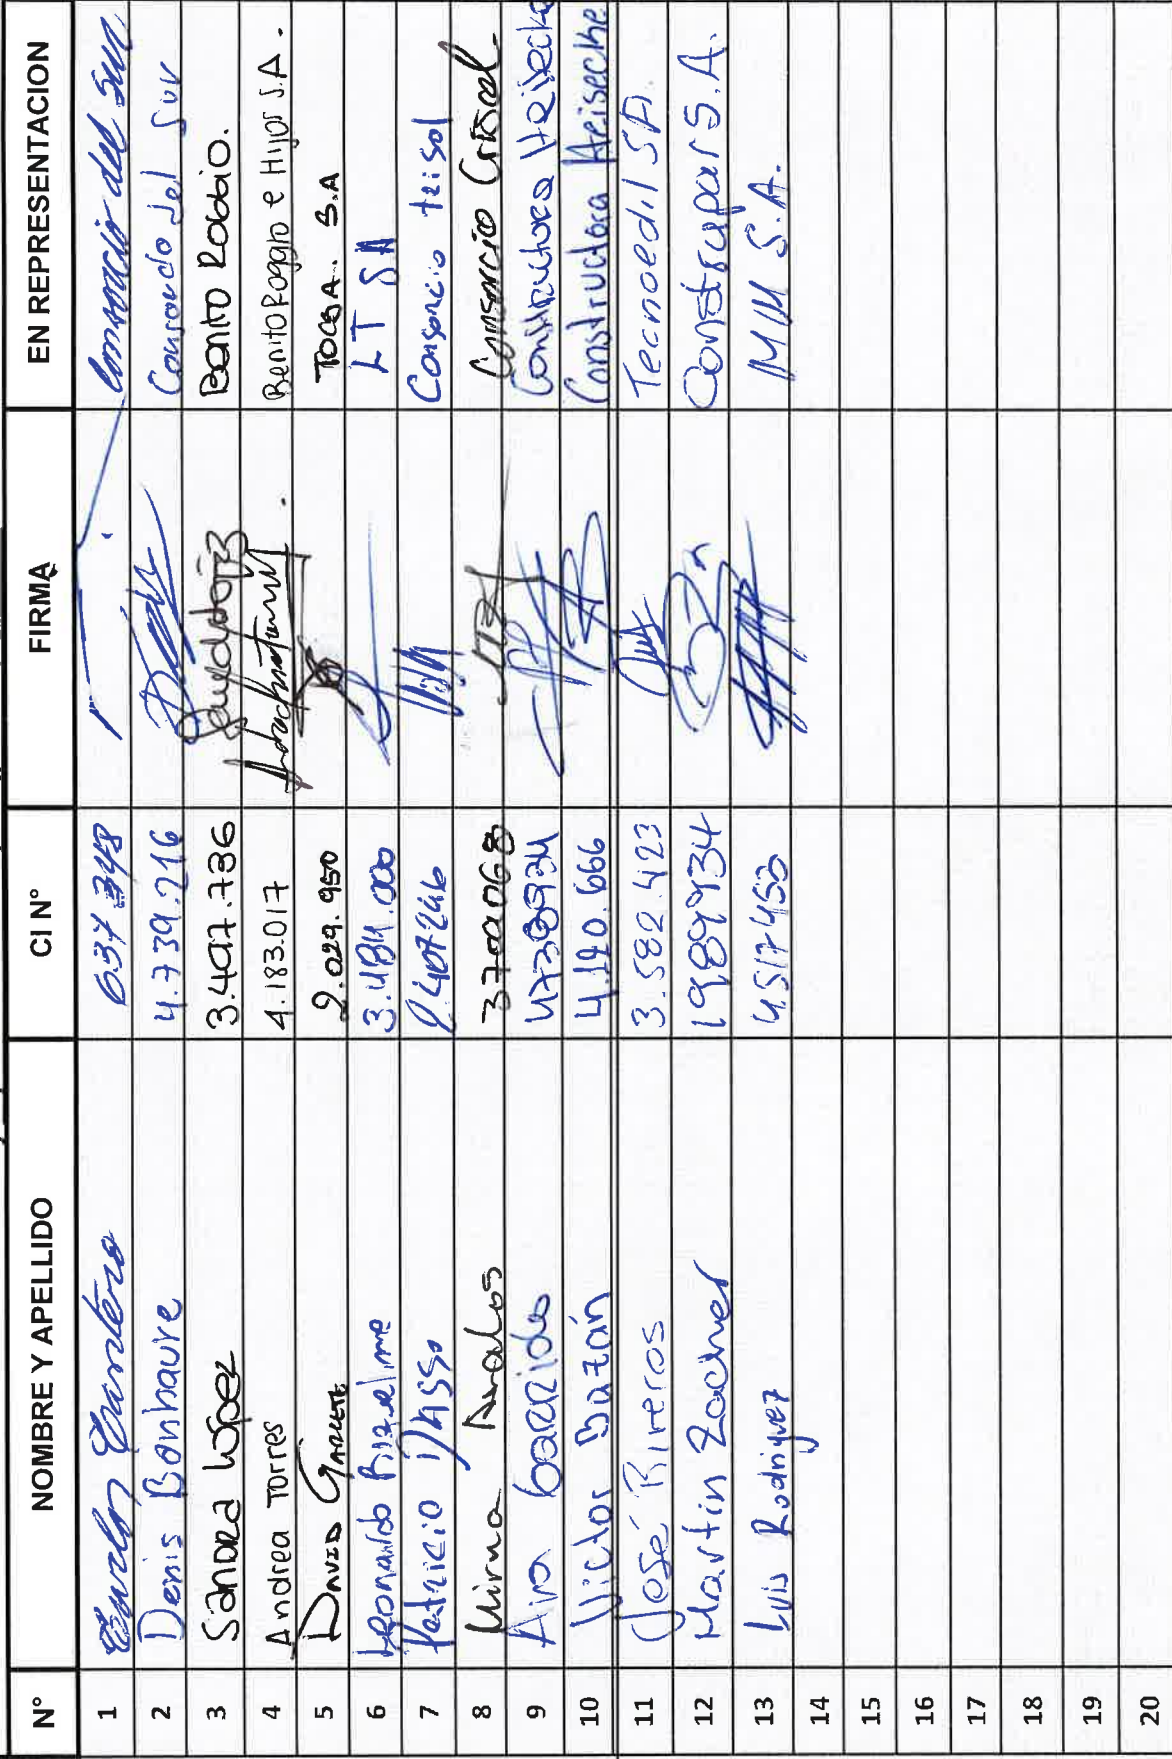 N° NOMBRE Y APELLIDO CI N° FIRMA EN REPRESENTACION
1 Carlos Cantero 637 348 Consorcio del Sur
2 Denis Bonhaure 4.739.216 Consorcio del Sur
3 Sandra López 3.497.786 Benito Roggio.
4 Andrea Torres 4.183.017 Benito Roggio e Hijos S.A.
5 DAVID GARCETE 2.029.950 TOCSA. S.A
6 Leonardo 3.484.000 LT SA
7 Patricio Dasso 2407246 Consorcio trisol
8 Mirna Avalos Consorcio
9 Ana Garrido 4738934 Constructora Heisecke
10 Victor Bazán 4.120.666 Constructora Heisecke
11 José Rireros 3.582.423 Tecnoedil SA.
12 Martin Zacher 1989934 Construpar S.A.
13 Luis Rodriguez 4.517453 MM S.A.
14
15
16
17
18
19
20